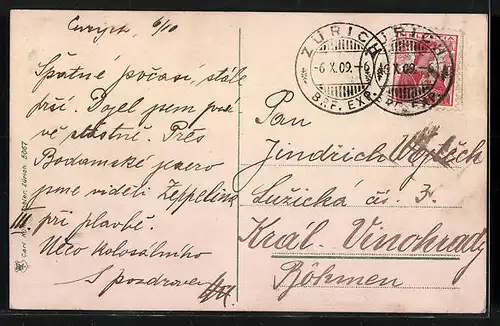 Curych 6/10
Špatné počasí, stále
prší. Dojel jsem prá-
vě šťastně. Přes
Bodamské jezero
jsme viděli Zeppelina
při plavbě.
Něco kolosálního
S pozdravem
ZÜRICH
-6.X.09.-6
BRF. EXP.
ZÜRICH
-6.X.09.-6
BRF. EXP.
Pan
Jindřich
Lužická čís. 3.
Král. Vinohrady
Böhmen
Zürich 5067